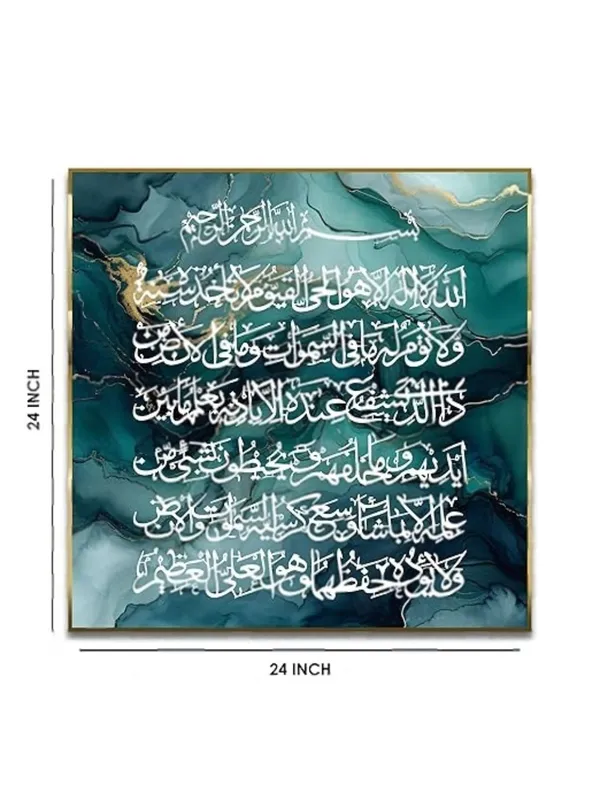 بسم الله الرحمن الرحيم
الله لا إله إلا هو الحي القيوم لا تأخذه سنة
ولا نوم له ما في السموات وما في الأرض من
ذا الذي يشفع عنده إلا بإذنه يعلم ما بين
أيديهم وما خلفهم ولا يحيطون بشيء من
علمه إلا بما شاء وسع كرسيه السموات والأرض
ولا يؤده حفظهما وهو العلي العظيم
24 INCH
24 INCH